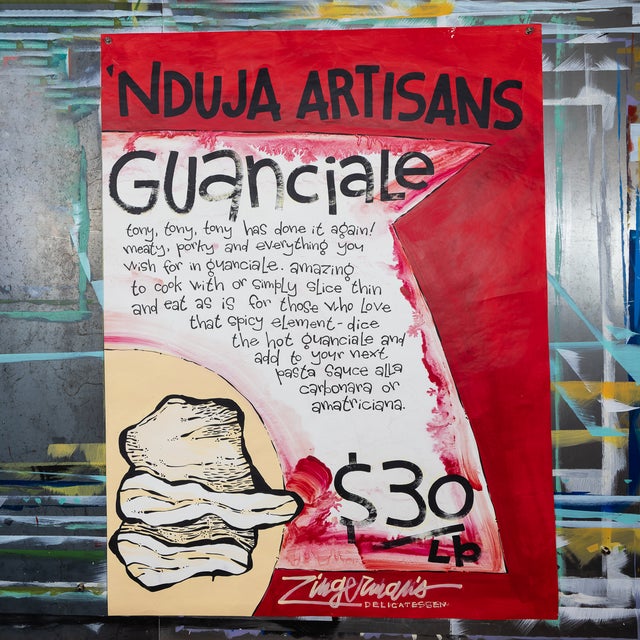 'NDUJA ARTISANS
GUanciale
tony, tony, tony has done it again!
meaty, porky and everything you
wish for in guanciale. amazing
to cook with or simply slice thin
and eat as is for those who love
that spicy element - dice
the hot guanciale and
add to your next
pasta sauce alla
carbonara or
amatriciana.
$30
Lb
Zingerman's
DELICATESSEN